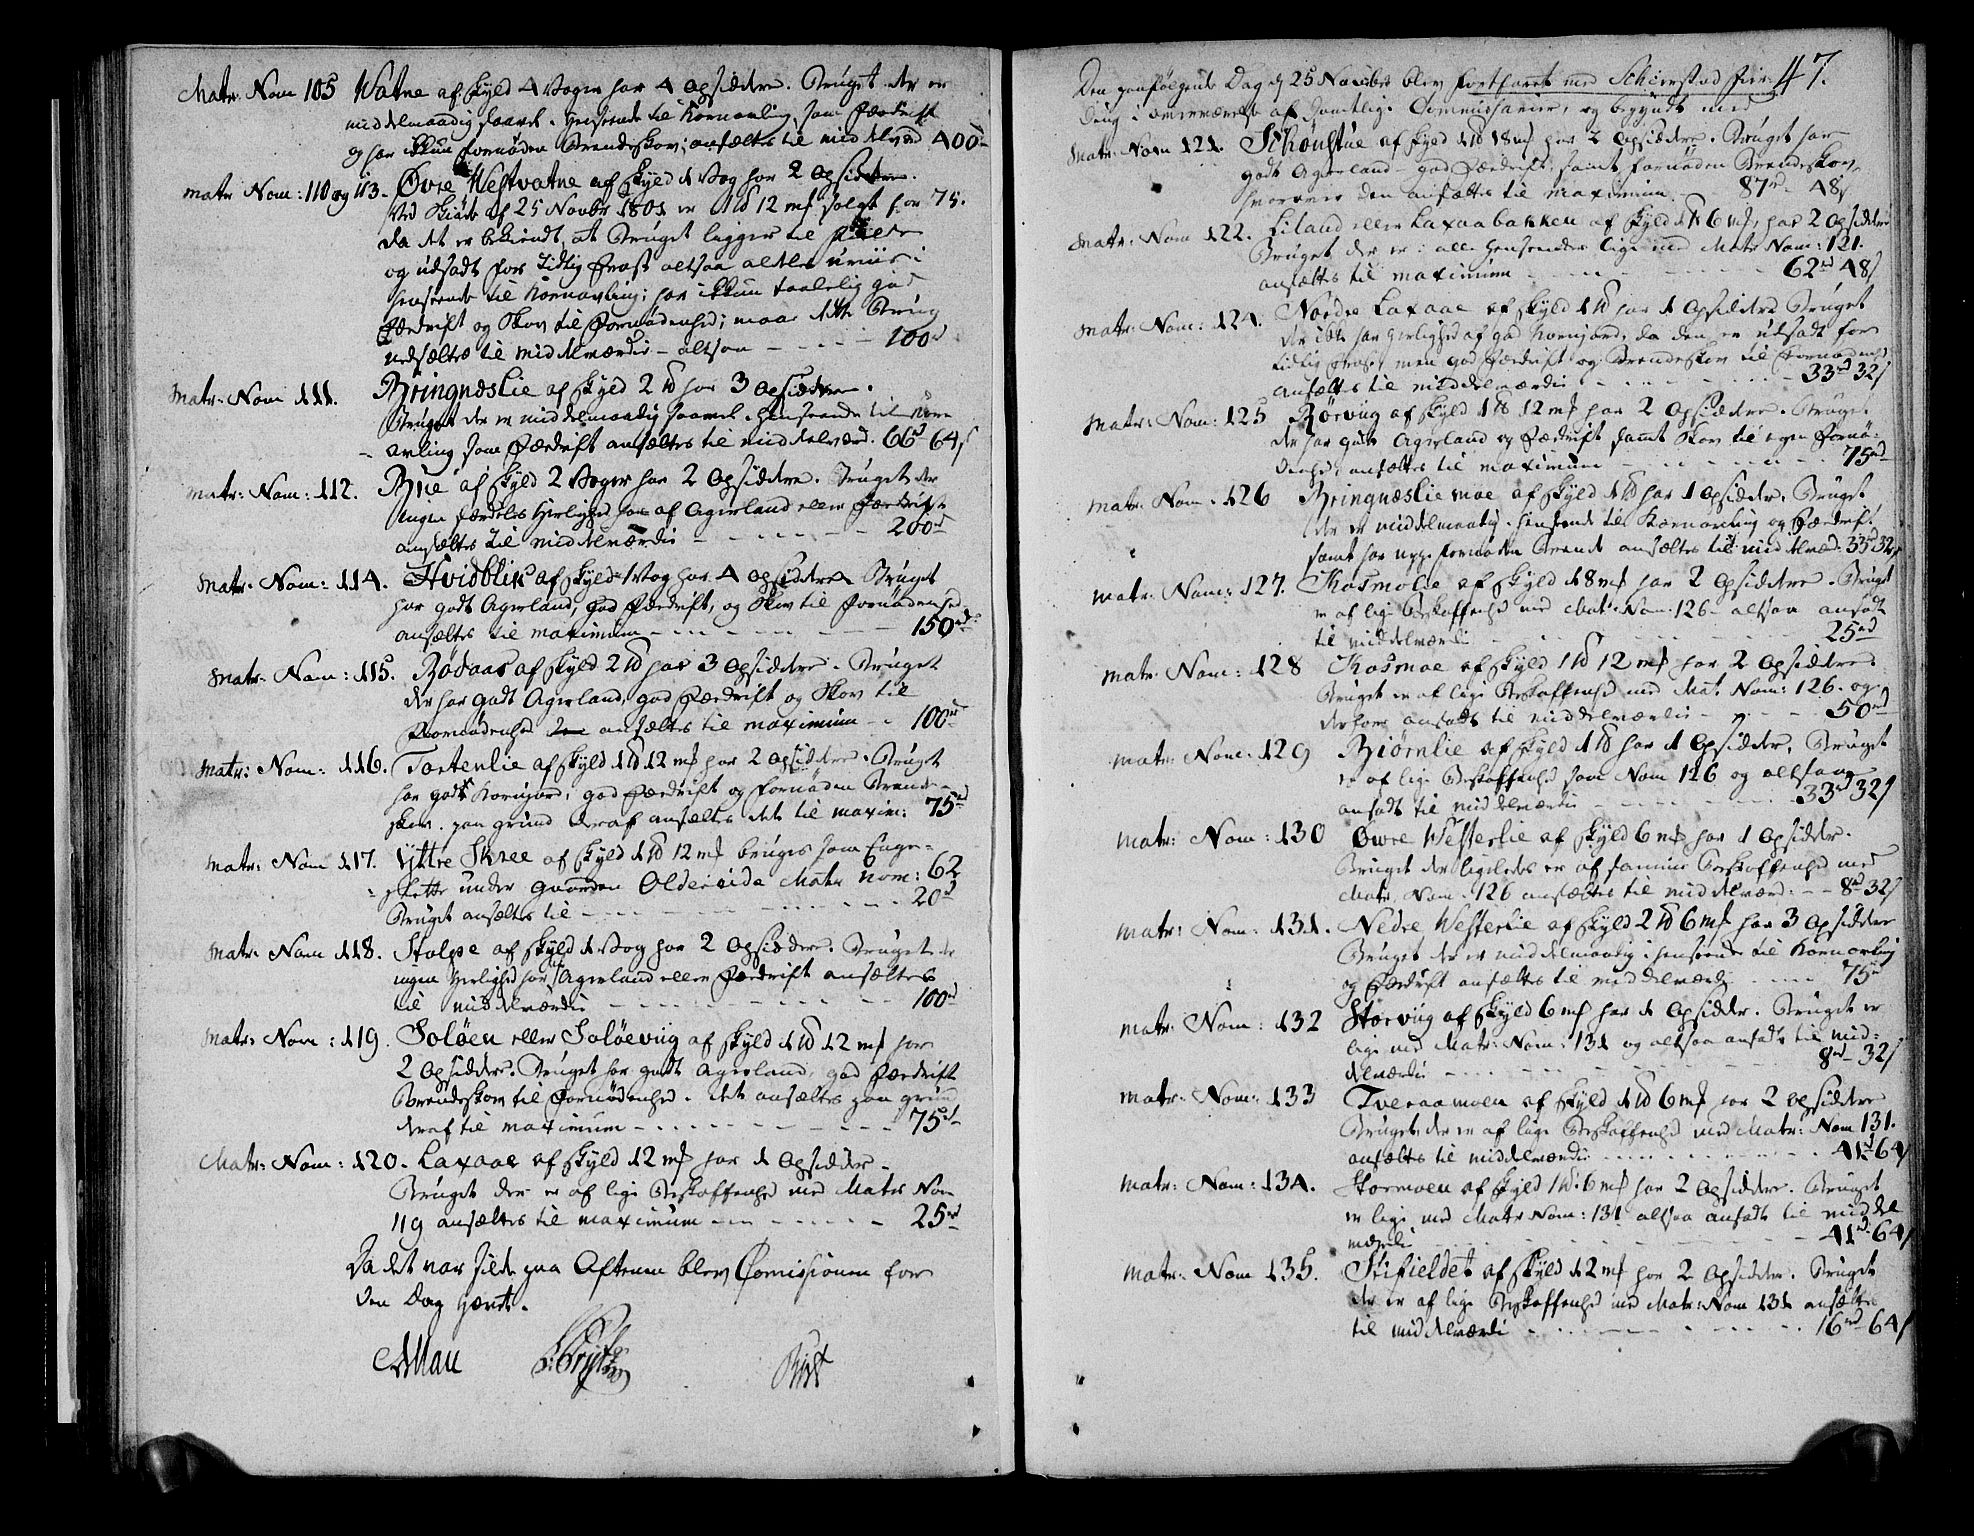 Matr: Nom 105 Watne af Skyld 4 Voger har 4 Opsiddere. Bruget der er
middelmaadig saavel i henseende til Kornavling, som Fædrift
og har ikkun fornøden Brendeskov; ansættes til middelværd 400
Matr Nom: 110 og 113. Øvre Westvatne af Skyld 1 Vog har 2 Opsiddere.
Ved Skiøde af 25 Novbr 1801 er 1 ℔ 12 mk solgt for 75.
Da det er bekiendt, at Bruget ligger til fields
og udsadt for tidlig Frost altsaa aldeles uviis i
henseende til Kornavling; har ikkun taalelig god
Fædrift og Skov til Fornødenhed; maa dette Brug
nedsættes til middelværdie - altsaa - - - - 100 rd
Matr: Nom 111. Bringnæslie af Skyld 2 ℔ har 3 Opsiddere.
Bruget der er middelmaadig saavel i henseende til Korn
avling som Fædrift ansættes til middelværd. 66 rd 64 s
Matr: Nom: 112. Brie af Skyld 2 Voger har 2 Opsiddere. Bruget der
ingen særdeles Herlighed har af Agerland eller Fædrift
ansættes til middelværdie - - - - - - 200 rd
Matr: Nom: 114. Hvidblik af Skyld 1 Vog har 4 Opsiddere Bruget
har godt Agerland, god Fædrift, og Skov til Fornødenhed
ansættes til maximum - - - - - - 150 rd
Matr: Nom: 115. Rødaas af Skyld 2 ℔ har 3 Opsiddere. Bruget
der har godt Agerland, god Fædrift og Skov til
Fornødenhed ansættes til maximum - - 100 rd
Matr: Nom: 116. Tortenlie af Skyld 1 ℔ 12 mk har 2 Opsiddere. Bruget
har godt Kornjord, god Fædrift og fornøden Brende-
skov. paa grund deraf ansættes det til maxim: 75 rd
Matr: Nom 117. Yttre Skree af Skyld 1 ℔ 12 mk bruges som Enge-
slette under Gaarden Oldereide Matr Nom: 62
Bruget ansættes til - - - - - - - 20 rd
Matr: Nom 118. Stolpe af Skyld 1 Vog har 2 Opsiddere. Bruget der
ingen Herlighed har af Agerland eller Fædrift ansættes
til middelværdie - - - - - - - 100 rd
Matr: Nom: 119. Soløen eller Soløeviig af Skyld 1 ℔ 12 mk har
2 Opsiddere. Bruget har godt Agerland, god Fædrift
Brendeskov til Fornødenhed. Det ansættes paa grund
deraf til maximum - - - - - - - 75 rd
Matr: Nom: 120. Laxaae af Skyld 12 mk har 1 Opsidder.
Bruget der er af lige Beskaffenhed med Matr Nom
119 ansættes til maximum - - - - - 25 rd
Da det var silde paa Aftenen blev Comissionen for
den Dag hævet.
Den paafølgende Dag d 25 Novbr blev fortfaret med Schierstad Fier- 47.
ding i overværelse af samtlige Commissairer, og begyndt med
Matr: Nom 121. Schønstue af Skyld 1 ℔ 18 mk har 2 Opsiddere. Bruget har
godt Agerland - god Fædrift, samt fornøden Brendeskov,
hvorover den ansættes til maximum - 87 rd 48 s
Matr: Nom 122. Eiland eller Laxaabakken af Skyld 1 ℔ 6 mk, har 2 Opsiddere
Bruget der er i alle henseender lige med Matr Nom: 121.
ansættes til maximum - - - - - - 62 rd 48 s
Matr: Nom: 124. Nordre Laxaae af Skyld 1 ℔ har 1 Opsiddere Bruget
der ikke har Herlighed af god Kornjord, da den er udsadt for
tidlig Frost, men god Fædrift og Brendeskov til Fornødenhed
ansættes til middelværdie - - - - - 33 rd 32 s
Matr: Nom: 125 Rørviig af Skyld 1 ℔ 12 mk har 2 Opsiddere. Bruget
der har godt Agerland og Fædrift samt Skov til egen Fornø-
denhed ansættes til maximum - - - - - 75 rd
Matr: Nom. 126 Bringnæslie moe af Skyld 1 ℔ har 1 Opsidder. Bruget
der er middelmaadig i henseende til Kornavling og Fædrift
samt har nyge fornøden Brende ansættes til middelværd: 33 rd 32 s
Matr: Nom: 127. Kosmolie af Skyld 18 mk har 2 Opsiddere. Bruget
er af lige Beskaffenhed med Matr: Nom: 126. altsaa ansadt
til middelværdie - - - - - - 25 rd
Matr: Nom: 128 Kosmoe af Skyld 1 ℔ 12 mk har 2 Opsiddere.
Bruget er af lige Beskaffenhed med Mat. Nom: 126. og
derfor ansadt til middelværdie - - - - 50 rd
Matr: Nom: 129 Biørnlie af Skyld 1 ℔ har 1 Opsidder, Bruget
er af lige Beskaffenhed som Nom 126 og altsaa
ansadt til middelværdie - - - - - 33 rd 32 s
Matr: Nom: 130 Øvre Westerlie af Skyld 6 mk har 1 Opsidder.
Bruget der ligeledes er af samme Beskaffenhed med
Matr. Nom. 126 ansættes til middelværd. - - 8 rd 32 s
Matr: Nom: 131. Nedre Westerlie af Skyld 2 ℔ 6 mk har 3 Opsiddere
Bruget der er middelmaadig i henseende til Kornavling
og Fædrift ansættes til middelværdie - - - 75 rd
Matr: Nom: 132 Storviig af Skyld 6 mk har 1 Opsidder. Bruget er
lige med Matr: Nom: 131 og altsaa ansadt til mid-
delværdie - - - - - - - 8 rd 32 s
Matr: Nom: 133 Tveraamoen af Skyld 1 ℔ 6 mk har 2 Opsiddere
Bruget der er af lige Beskaffenhed med Matr: Nom 131.
ansættes til middelværdie - - - - - - 41 rd 64 s
Matr: Nom: 134. Stormoen af Skyld 1 ℔. 6 mk har 2 Opsiddere. Bruget
er lige med Matr Nom: 131 altsaa ansadt til middel
værdie - - - - - - - 41 rd 64 s
Matr: Nom 135. Stifieldet af Skyld 12 mk har 2 Opsiddere. Bruget
der er af lige Beskaffenhed med Matr: Nom 131 ansættes
til middelværdie - - - - - - 16 rd 64 s